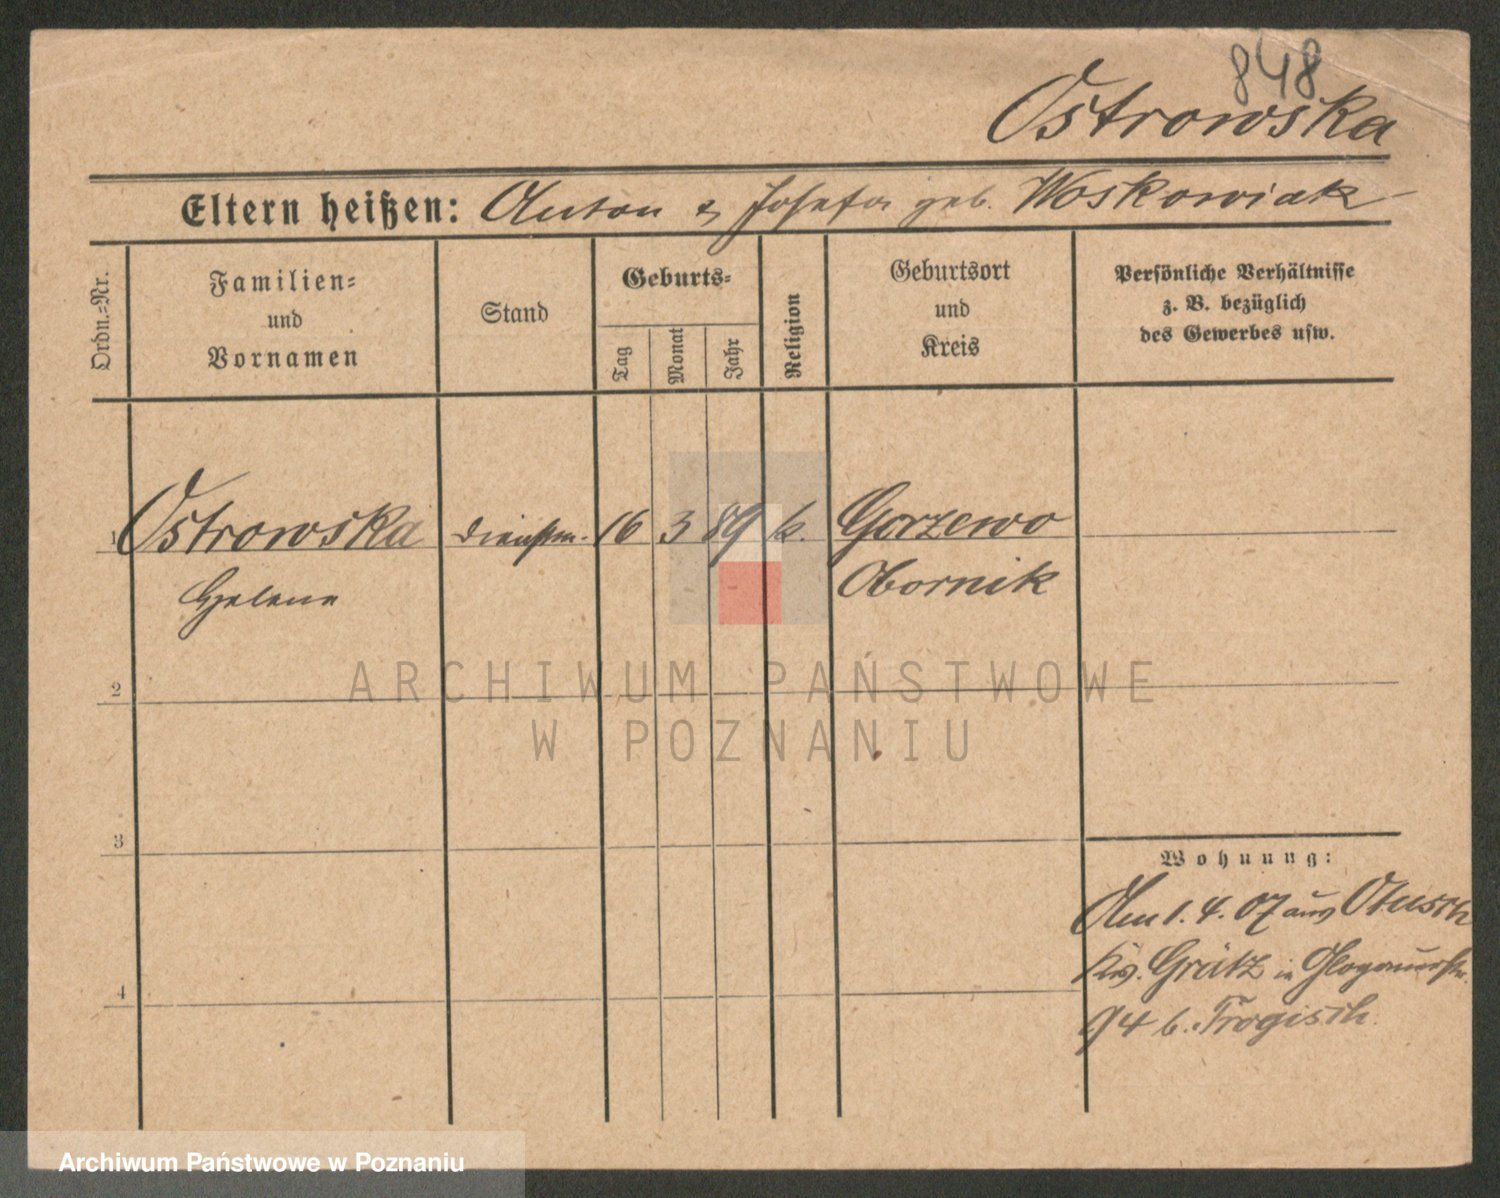 848
Ostrowska
Eltern heißen: Anton & Josefa geb. Woskowiak
Ordn.-Nr.
Familien-
und
Vornamen
Stand
Geburts-
Tag
Monat
Jahr
Religion
Geburtsort
und
Kreis
Persönliche Verhältnisse
z. B. bezüglich
des Gewerbes usw.
1 Ostrowska Dienstm. 16 3 89 k. Gorzewo
Helene Obornik
ARCHIWUM PAŃSTWOWE
W POZNANIU
2
3
Wohnung:
Am 1. 4. 07 aus Otusch
Krs. Grätz in Glogauerstr.
94 b. Trogisch
4
Archiwum Państwowe w Poznaniu